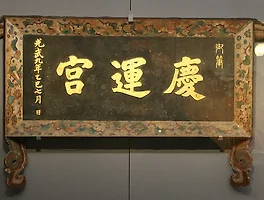 御筆
慶運宮
光武九年乙巳七月 日